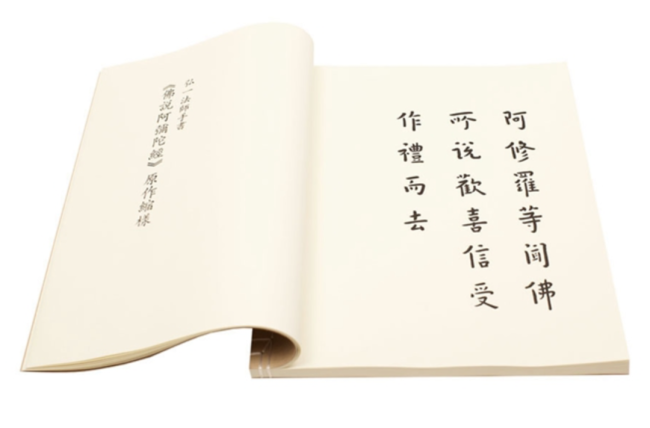 阿修羅等聞佛
所說歡喜信受
作禮而去
弘一法師手書
《佛說阿彌陀經》原作縮樣